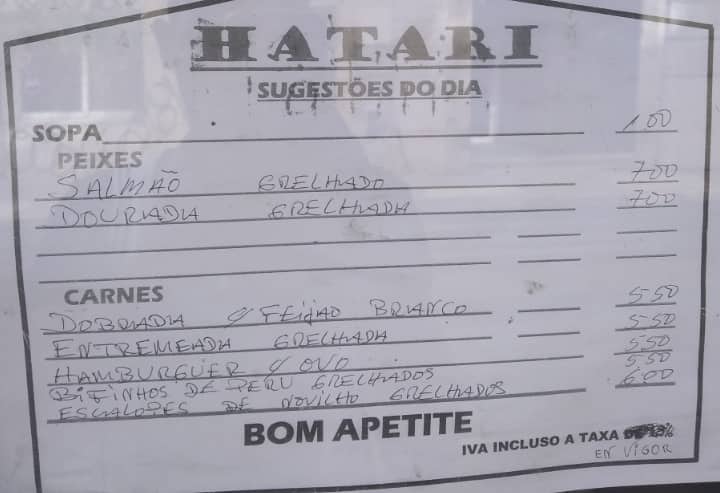 HATARI
SUGESTÕES DO DIA
SOPA 1,00
PEIXES
SALMÃO GRELHADO 7,00
DOURADA GRELHADA 7,00
CARNES
DOBRADA C/ FEIJAO BRANCO 5,50
ENTREMEADA GRELHADA 5,50
HAMBURGUER C/ OVO 5,50
BIFINHOS DE PERU GRELHADOS 5,50
ESCALOPES DE NOVILHO GRELHADOS 6,00
BOM APETITE
IVA INCLUSO A TAXA
EN VIGOR